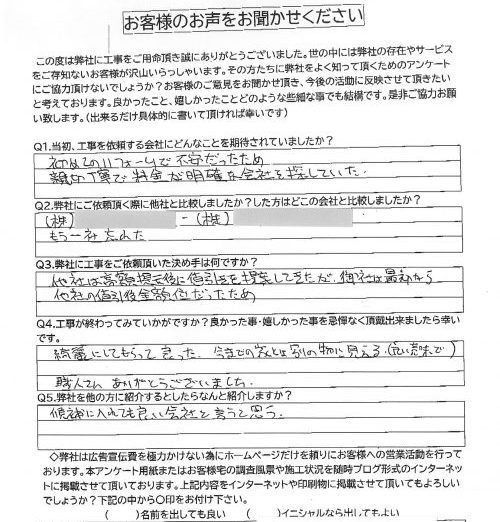 お客様のお声をお聞かせください
この度は弊社に工事をご用命頂き誠にありがとうございました。世の中には弊社の存在やサービス
をご存知ないお客様が沢山いらっしゃいます。その方たちに弊社をよく知って頂くためのアンケート
にご協力頂けないでしょうか?お客様のご意見をお聞かせ頂き、今後の活動に反映させて頂きたい
と考えております。良かったこと、嬉しかったことどのような些細な事でも結構です。是非ご協力お願
い致します。(出来るだけ具体的に書いて頂ければ幸いです)
Q1.当初、工事を依頼する会社にどんなことを期待されていましたか?
初めてのリフォームで不安だったため
親切丁寧で料金が明確な会社を探していた.
Q2.弊社にご依頼頂く際に他社と比較しましたか?した方はどこの会社と比較しましたか?
(株) - (株)
もう一社 忘れた
Q3.弊社に工事をご依頼頂いた決め手は何ですか?
他社は高額提示後に値引きを提案してきたが、御社は最初から
他社の値引後金額位だったため
Q4.工事が終わってみていかがですか?良かった事・嬉しかった事を忌憚なく頂戴出来ましたら幸い
です。
綺麗にしてもらって良かった. 今までの家とは別の物に見える.(良い意味で)
職人さん ありがとうございました.
Q5.弊社を他の方に紹介するとしたらなんと紹介しますか?
候補に入れても良い会社と言うと思う.
◇弊社は広告宣伝費を極力かけない為にホームページだけを頼りにお客様への営業活動を行って
おります。本アンケート用紙またはお客様宅の調査風景や施工状況を随時ブログ形式のインターネッ
トに掲載させて頂いております。上記内容をインターネットや印刷物に掲載させて頂いてもよろしい
でしょうか?下記の中から〇印をお付け下さい。
( )名前を出しても良い ( )イニシャルなら出してもよい